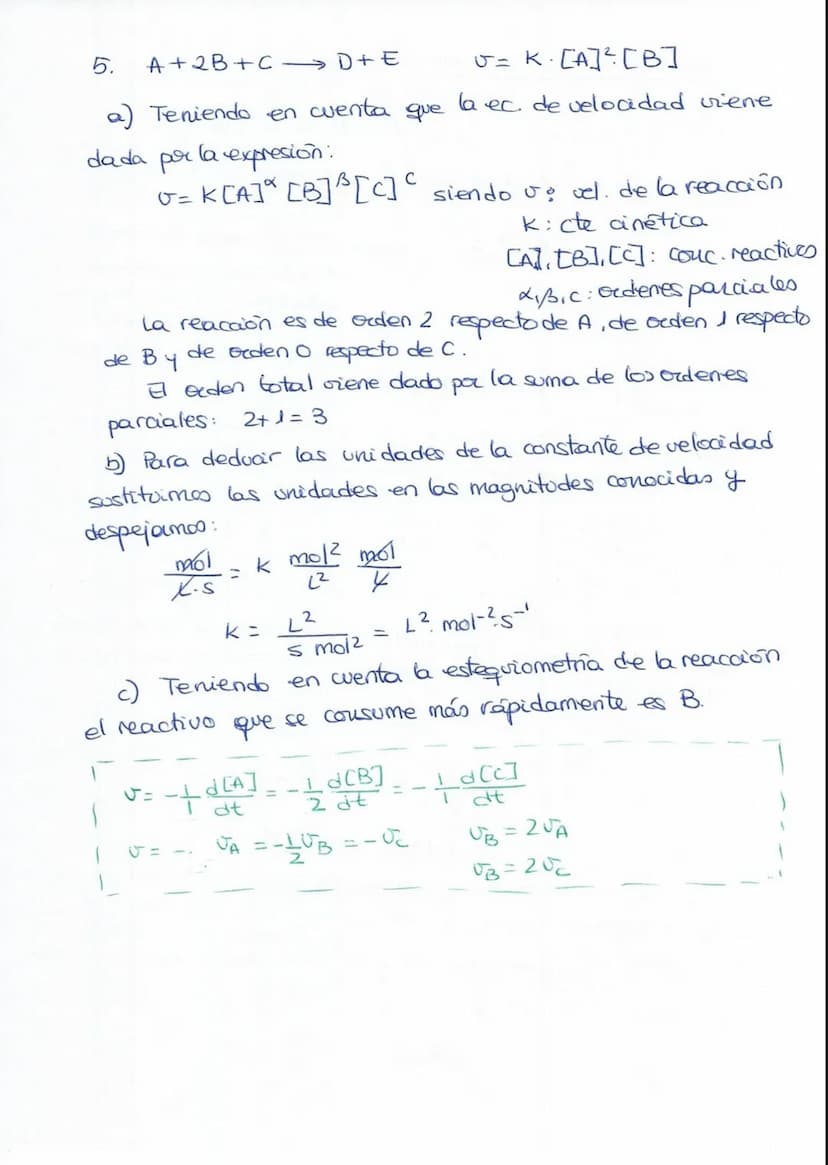 5. A + 2B + C ⟶ D + E v = K · [A]²·[B]
a) Teniendo en cuenta que la ec. de velocidad viene
dada por la expresión:
v = K[A]^α [B]^β [C]^c siendo v: vel. de la reacción
K: cte cinética
[A], [B], [C]: conc. reactivos
α, β, c: ordenes parciales
La reacción es de orden 2 respecto de A, de orden 1 respecto
de B y de orden 0 respecto de C.
El orden total viene dado por la suma de los ordenes
parciales: 2+1=3
b) Para deducir las unidades de la constante de velocidad
sustituimos las unidades en las magnitudes conocidas y
despejamos:
mol/L·s = K mol²/L² mol/L
K = L²/s mol² = L²·mol⁻²·s⁻¹
c) Teniendo en cuenta la estequiometría de la reacción
el reactivo que se consume más rápidamente es B.
v = -1/1 d[A]/dt = -1/2 d[B]/dt = -1/1 d[C]/dt
v = -. v_A = -1/2 v_B = -v_C v_B = 2v_A
v_B = 2v_C